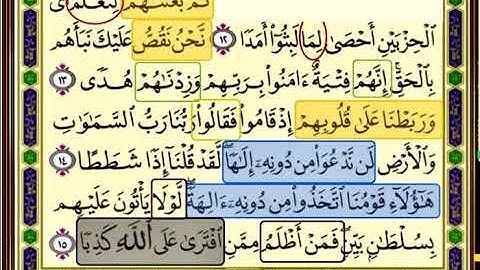 ثُمَّ بَعَثْنَـٰهُمْ لِنَعْلَمَ أَىُّ
ٱلْحِزْبَيْنِ أَحْصَىٰ لِمَا لَبِثُوٓا۟ أَمَدًا ١٢ نَّحْنُ نَقُصُّ عَلَيْكَ نَبَأَهُم
بِٱلْحَقِّ ۚ إِنَّهُمْ فِتْيَةٌ ءَامَنُوا۟ بِرَبِّهِمْ وَزِدْنَـٰهُمْ هُدًى ١٣
وَرَبَطْنَا عَلَىٰ قُلُوبِهِمْ إِذْ قَامُوا۟ فَقَالُوا۟ رَبُّنَا رَبُّ ٱلسَّمَـٰوَٰتِ
وَٱلْأَرْضِ لَن نَّدْعُوَا۟ مِن دُونِهِۦٓ إِلَـٰهًا ۖ لَّقَدْ قُلْنَآ إِذًا شَطَطًا ١٤
هَـٰٓؤُلَآءِ قَوْمُنَا ٱتَّخَذُوا۟ مِن دُونِهِۦٓ ءَالِهَةً ۖ لَّوْلَا يَأْتُونَ عَلَيْهِم
بِسُلْطَـٰنٍۭ بَيِّنٍ ۖ فَمَنْ أَظْلَمُ مِمَّنِ ٱفْتَرَىٰ عَلَى ٱللَّهِ كَذِبًا ١٥